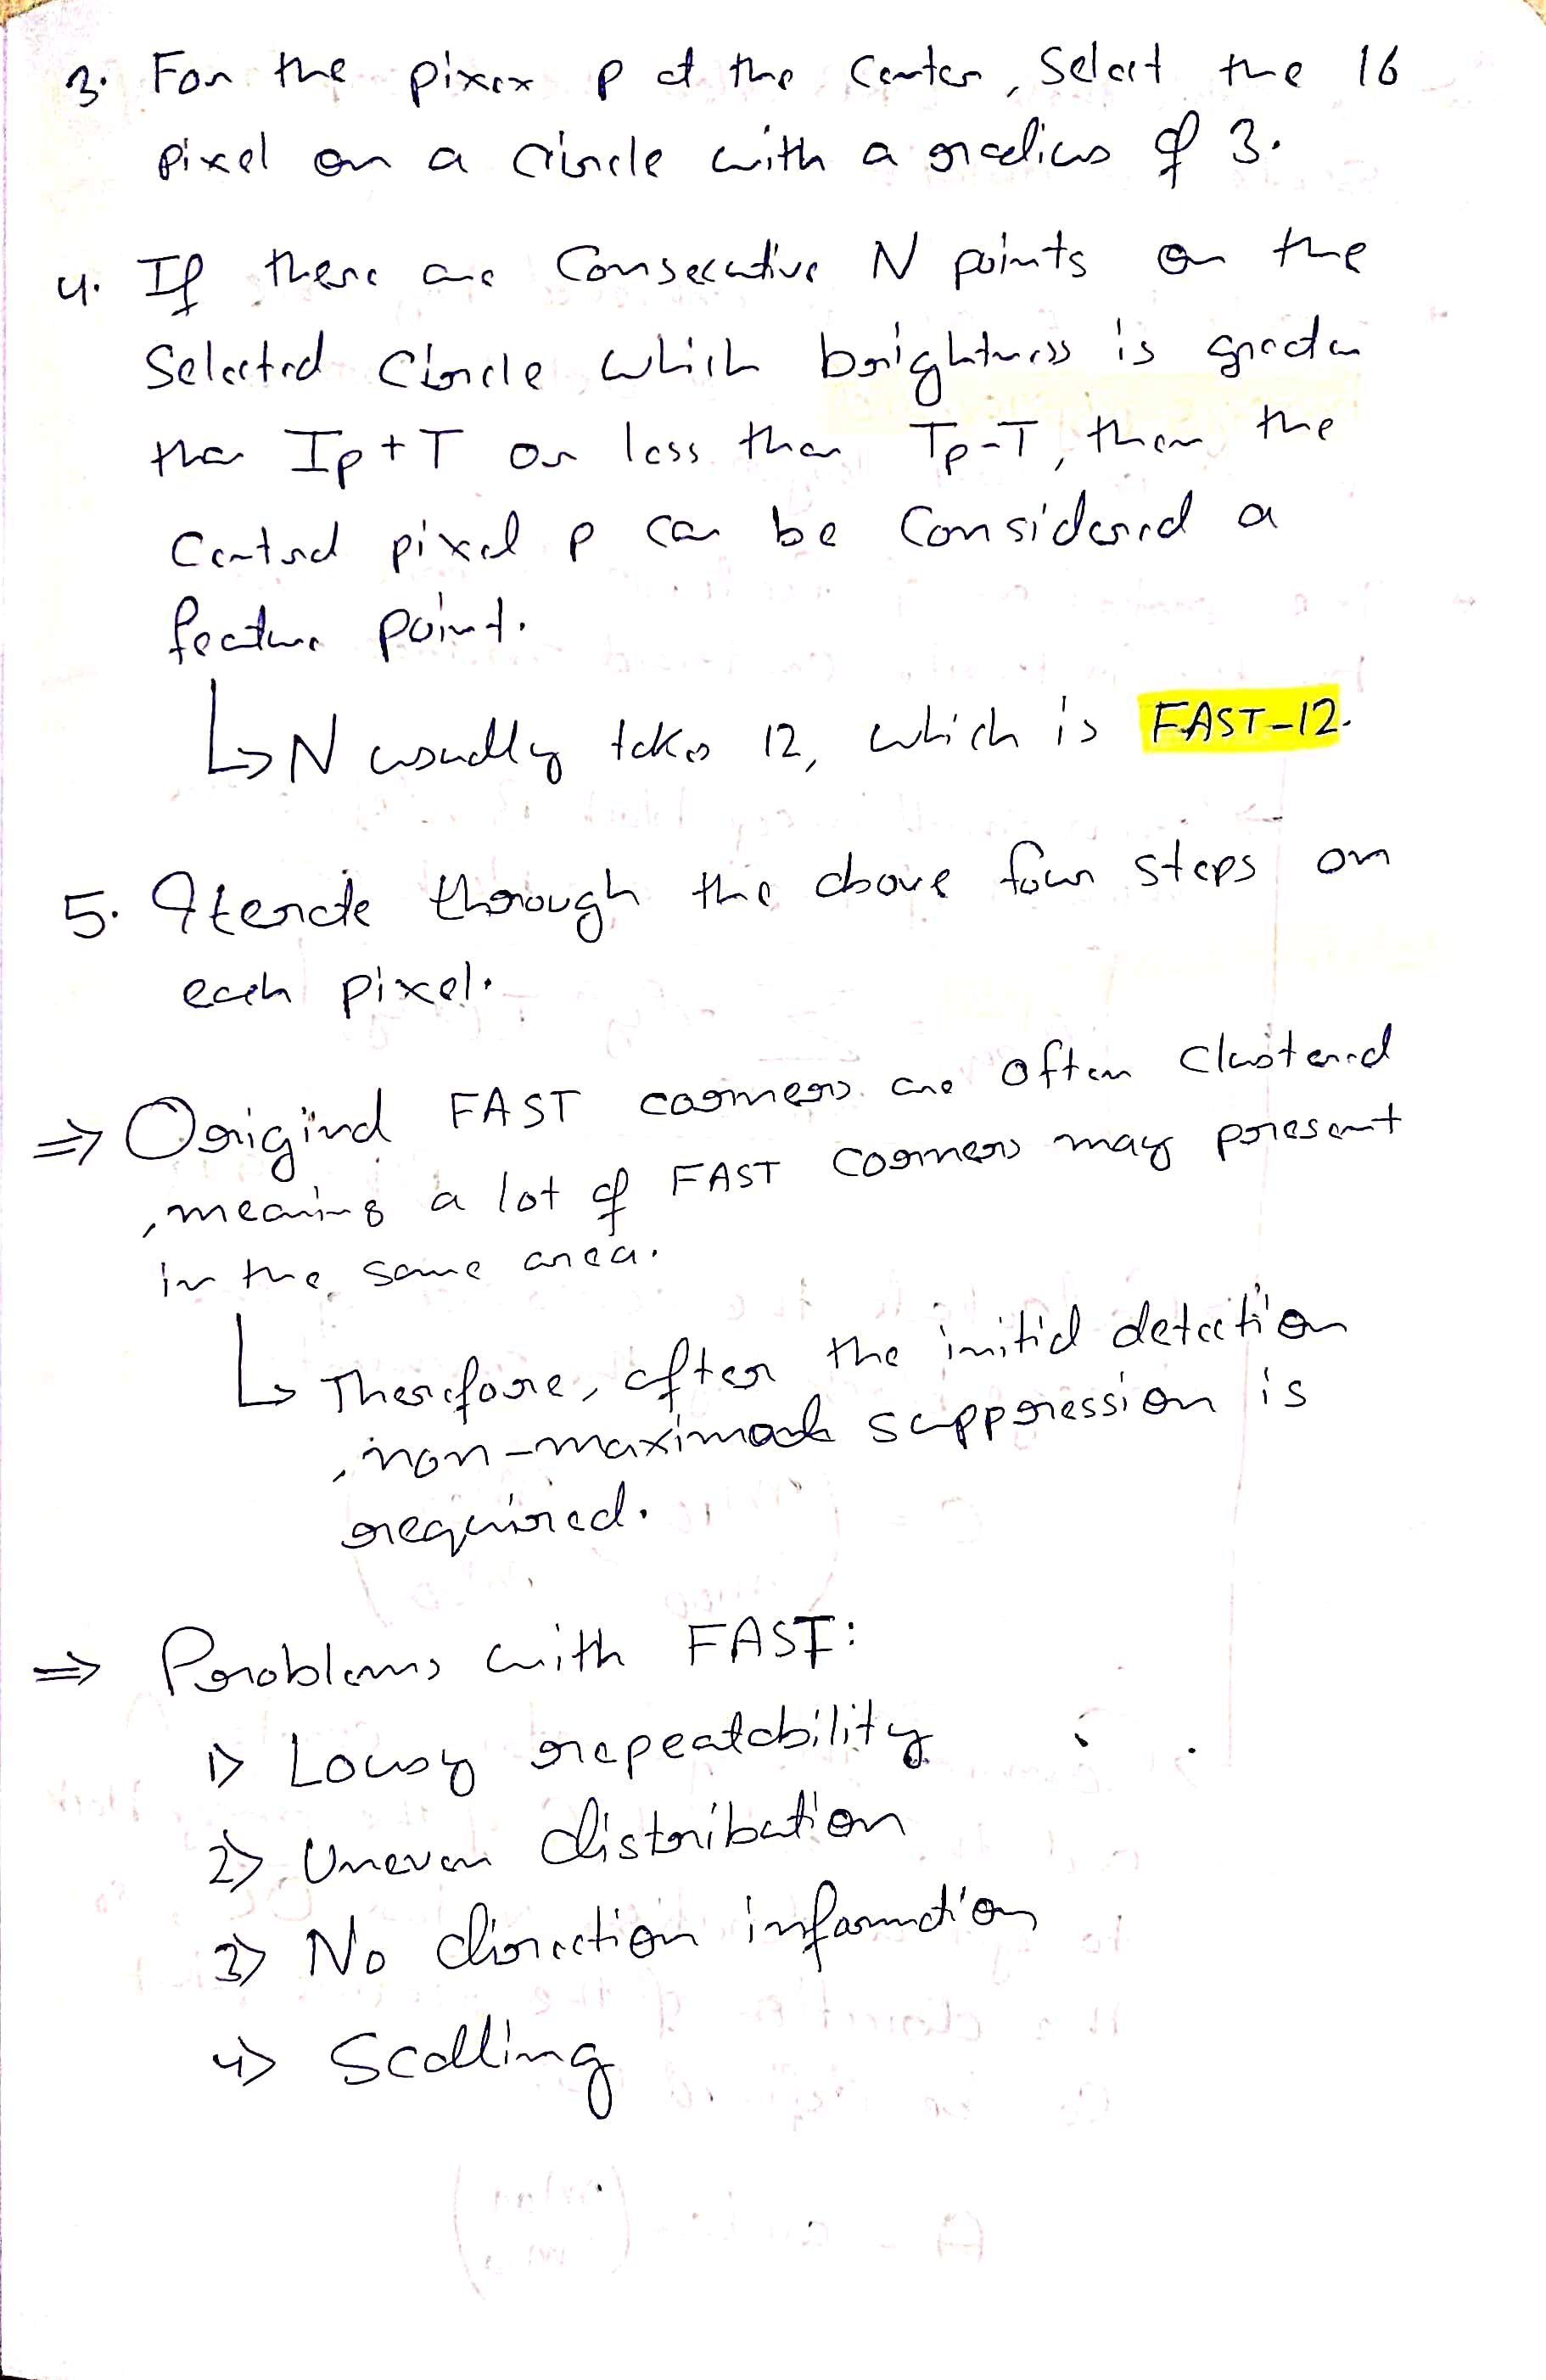 3. For the pixex p at the Center, Select the 16
pixel on a circle with a radius of 3.
4. If there are Consecutive N points on the
Selected Circle which brightness is greater
than Ip+T or less than Tp-T, then the
Central pixel p can be Considered a
feature point.
↳ N usually takes 12, which is FAST-12.
5. Iterate through the above four steps on
each pixel.
⇒ Original FAST corners are often Clustered
, meaning a lot of FAST Corners may present
in the same area.
↳ Therefore, after the initial detection
, non-maximal suppression is
required.
⇒ Problems with FAST:
1> Lousy repeatability
2> Uneven distribution
3> No direction information
4> Scalling